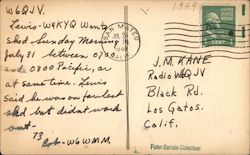 W6QJV.
Lewis-W4KYQ Wants
sked Sunday Morning
July 31 between 0700
and 0800 Pacific, or
at same time. Lewis
Said he was on for last
sked but didnt work
out.
73
Bob-W6WMM.
1949
SAN MATEO
JUL 28
1949
CALIF.
J.M. KANE
Radio W6QJV
Black Rd.
Los Gatos.
Calif.
Peter Samala Collection